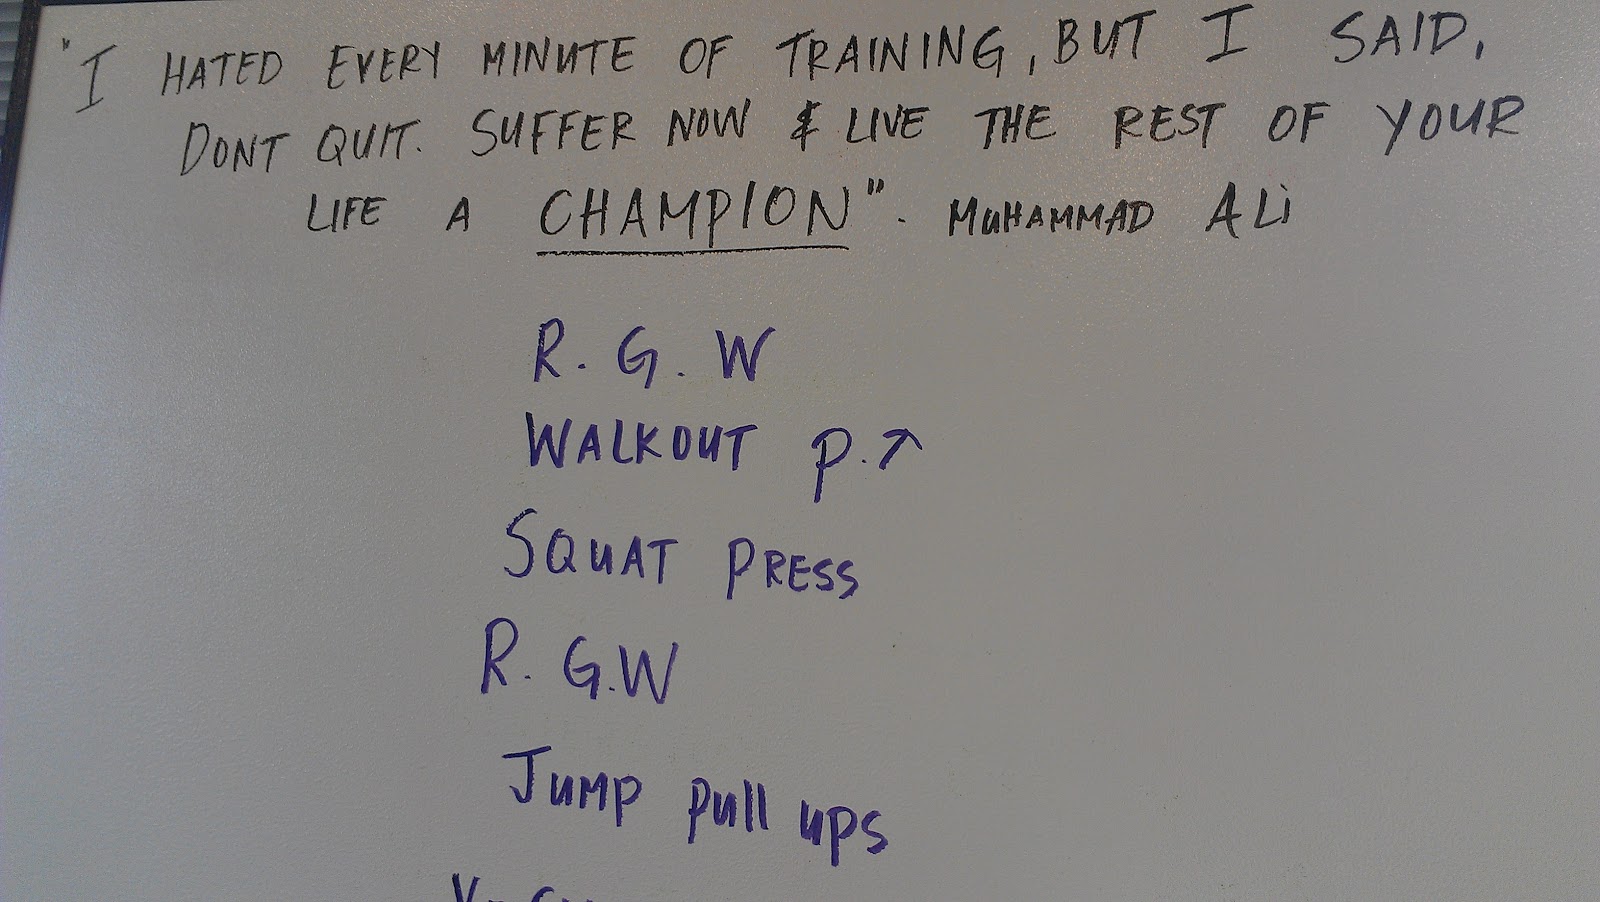 "I HATED EVERY MINUTE OF TRAINING, BUT I SAID,
DONT QUIT. SUFFER NOW & LIVE THE REST OF YOUR
LIFE A CHAMPION". MUHAMMAD ALi
R. G. W
WALKOUT P. ↗
SQUAT PRESS
R. G.W
JUMP pull ups